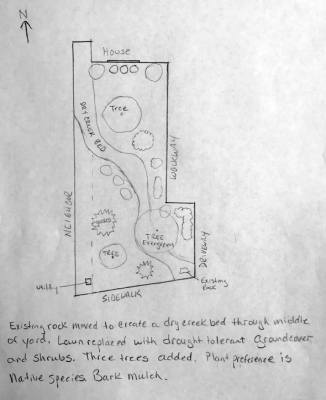 N
House
Tree
DRY CREEK BED
WALKWAY
NEIGHBOR
TREE
Evergreen
TREE
DRIVEWAY
utility
Existing
Rock
SIDEWALK
Existing rock moved to create a dry creek bed through middle
of yard. Lawn replaced with drought tolerant Groundcover
and shrubs. Three trees added. Plant preference is
Native species Bark mulch.